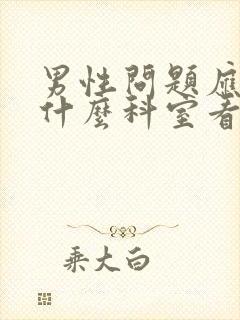 男性問題應
什麼科室看
乘大白